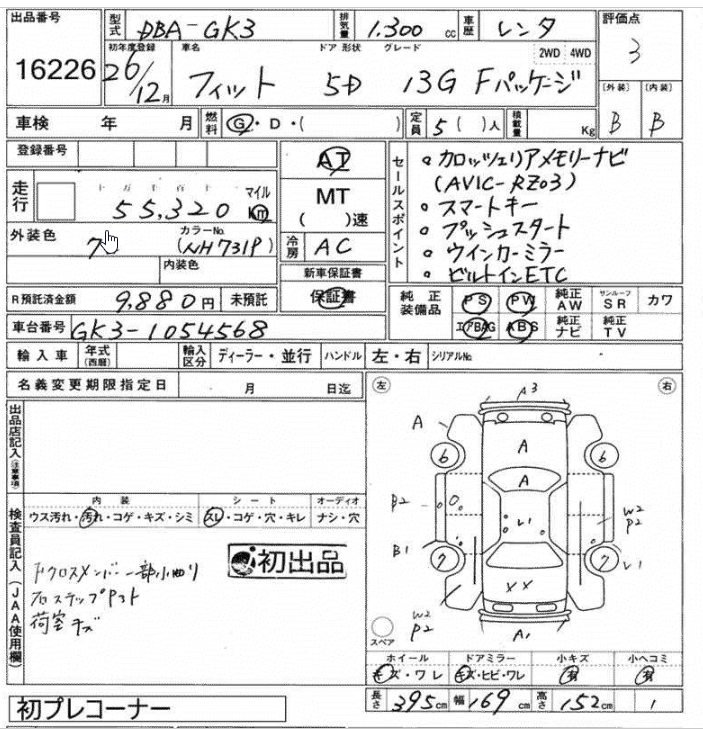 出品番号 16226
型式 DBA-GK3 排気量 1.300 cc 車歴 レンタ
評価点 3
初年度登録 26/12月 車名 フィット ドア 形状 5D グレード 13G Fパッケージ 2WD 4WD
[外装] B [内装] B
車検 年 月 燃料 G・D・( ) 定員 5( )人 積載量 Kg
登録番号
走行 55,320 マイル Km
外装色 カラーNo. (NH731P)
内装色
R預託済金額 9,880円 未預託
車台番号 GK3-1054568
AT
MT
( )速
冷房 AC
新車保証書
保証書
セールスポイント
カロッツェリアメモリーナビ
(AVIC-RZ03)
スマートキー
プッシュスタート
ウインカーミラー
ビルトインETC
純正装備品 PS PW 純正AW サンルーフSR カワ
エアBAG ABS 純正ナビ 純正TV
輸入車 年式(西暦) 輸入区分 ディーラー・並行 ハンドル 左・右 シリアルNo.
名義変更期限指定日 月 日迄
出品店記入(注意事項)
検査員記入(JAA使用欄)
内装 シート オーディオ
ウス汚れ・汚れ・コゲ・キズ・シミ スレ・コゲ・穴・キレ ナシ・穴
初出品
荷室キズ
左 右
A3
A
A
A
6 6
B2
B1
W2
P2
7 7
XX
W2
P2
A1
スペア
ホイール ドアミラー 小キズ 小ヘコミ
キズ・ワレ キズ・ヒビ・ワレ 有 有
長さ 395cm 幅 169cm 高さ 152cm 1
初プレコーナー